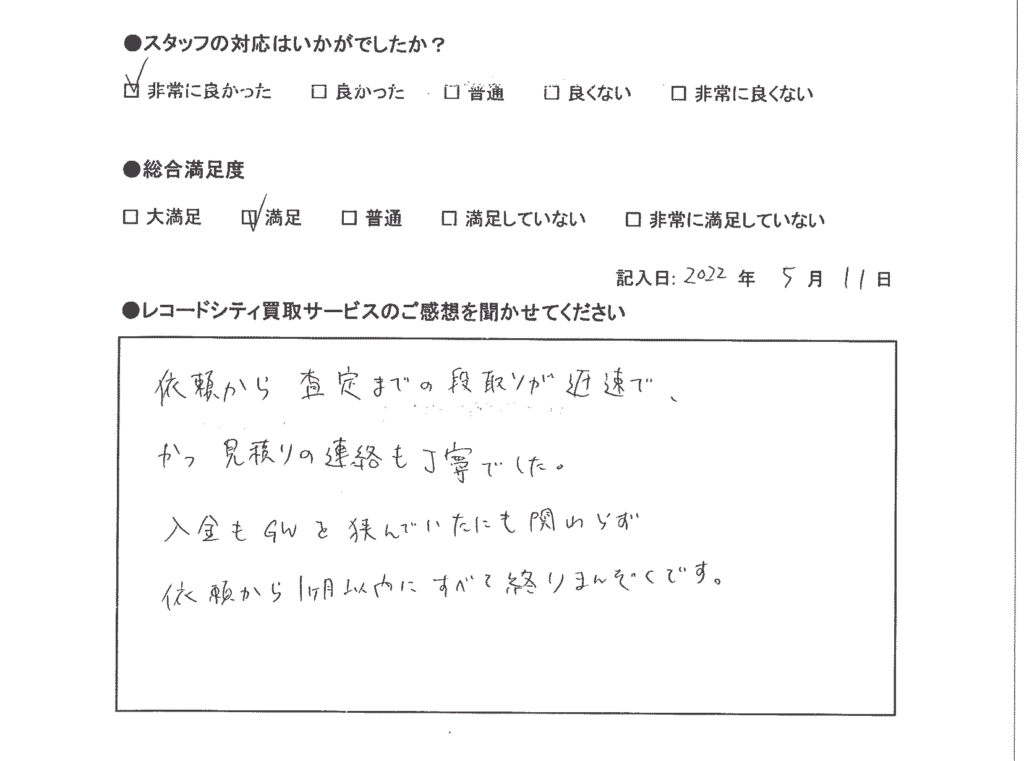 ●スタッフの対応はいかがでしたか？
☑ 非常に良かった □ 良かった □ 普通 □ 良くない □ 非常に良くない
●総合満足度
□ 大満足 ☑ 満足 □ 普通 □ 満足していない □ 非常に満足していない
記入日: 2022 年 5 月 11 日
●レコードシティ買取サービスのご感想を聞かせてください
依頼から 査定までの段取りが迅速で、
かつ 見積りの連絡も丁寧でした。
入金もGWを狭んでいたにも関わらず
依頼から1ヶ月以内にすべて終りまんぞくです。